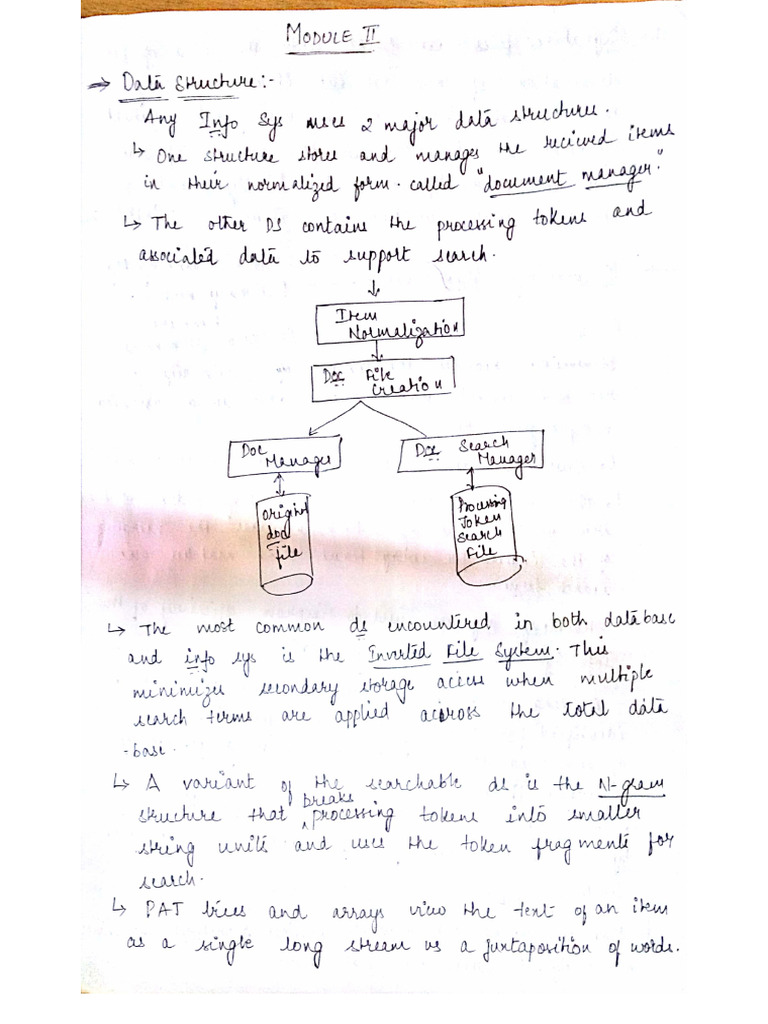 MODULE II
→ Data Structure:-
Any Info Sys uses 2 major data structures.
↳ One structure stores and manages the recieved items
in their normalized form. called "document manager."
↳ The other DS contains the processing tokens and
associated data to support search.
Item
Normalization
Doc File
Creation
Doc
Manager
Doc Search
Manager
Original
doc
file
Processing
Token
Search
File
↳ The most common ds encountered in both database
and info sys is the Inverted File System. This
minimizes secondary storage access when multiple
search terms are applied across the total data
-base.
↳ A variant of the searchable ds is the N-gram
structure that breaks processing tokens into smaller
string units and uses the token fragments for
search.
↳ PAT trees and arrays view the text of an item
as a single long stream vs a juxtaposition of words.